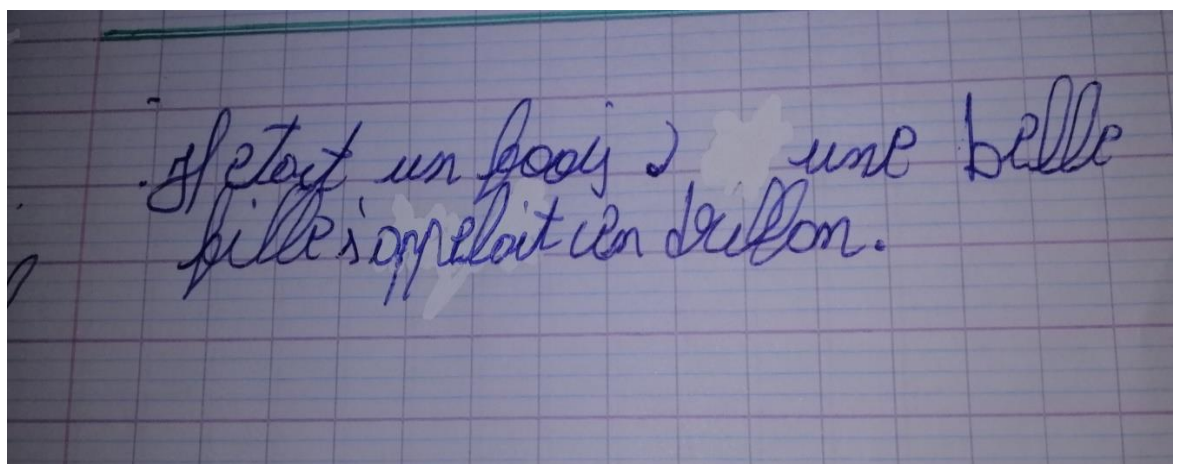 Il etait un fooij 2 une belle
fille s'appelait cen drillon.